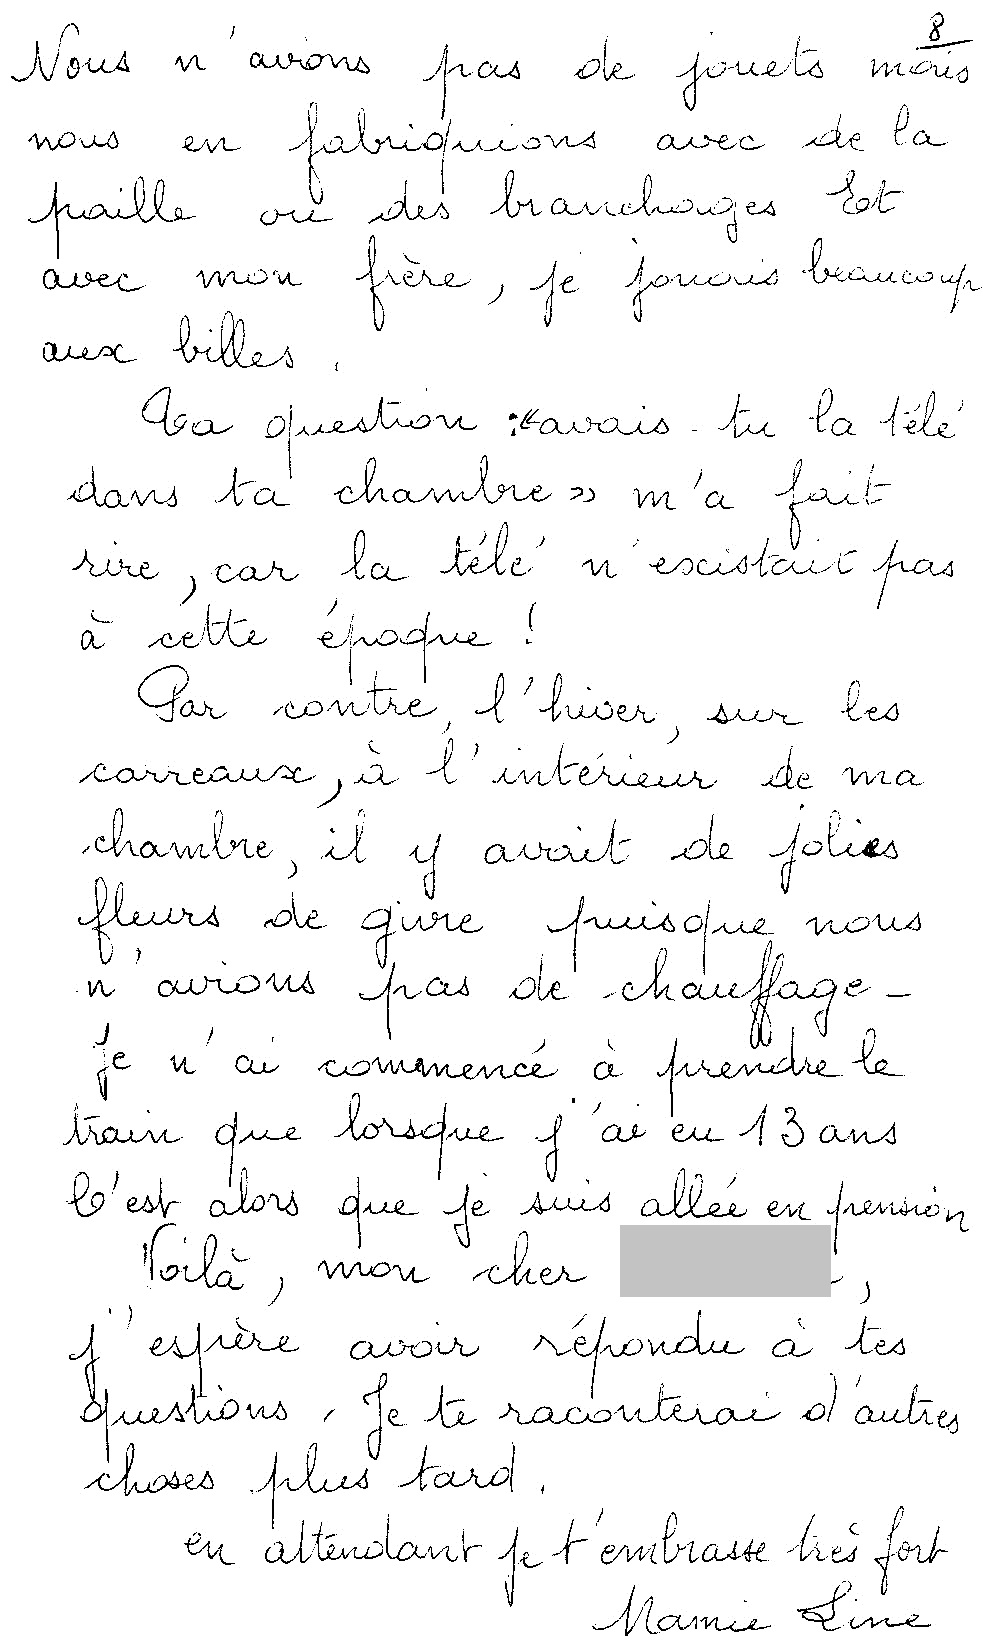 8
Nous n'avions pas de jouets mais
nous en fabriquions avec de la
paille ou des branchages Et
avec mon frère, je jouais beaucoup
aux billes.
Ta question : "avais-tu la télé
dans ta chambre" m'a fait
rire, car la télé n'existait pas
à cette époque !
Par contre, l'hiver, sur les
carreaux, à l'intérieur de ma
chambre, il y avait de jolies
fleurs de givre puisque nous
n'avions pas de chauffage -
Je n'ai commencé à prendre le
train que lorsque j'ai eu 13 ans
C'est alors que je suis allée en pension
Voilà, mon cher ,
j'espère avoir répondu à tes
questions. Je te raconterai d'autres
choses plus tard.
en attendant je t'embrasse très fort
Mamie Line